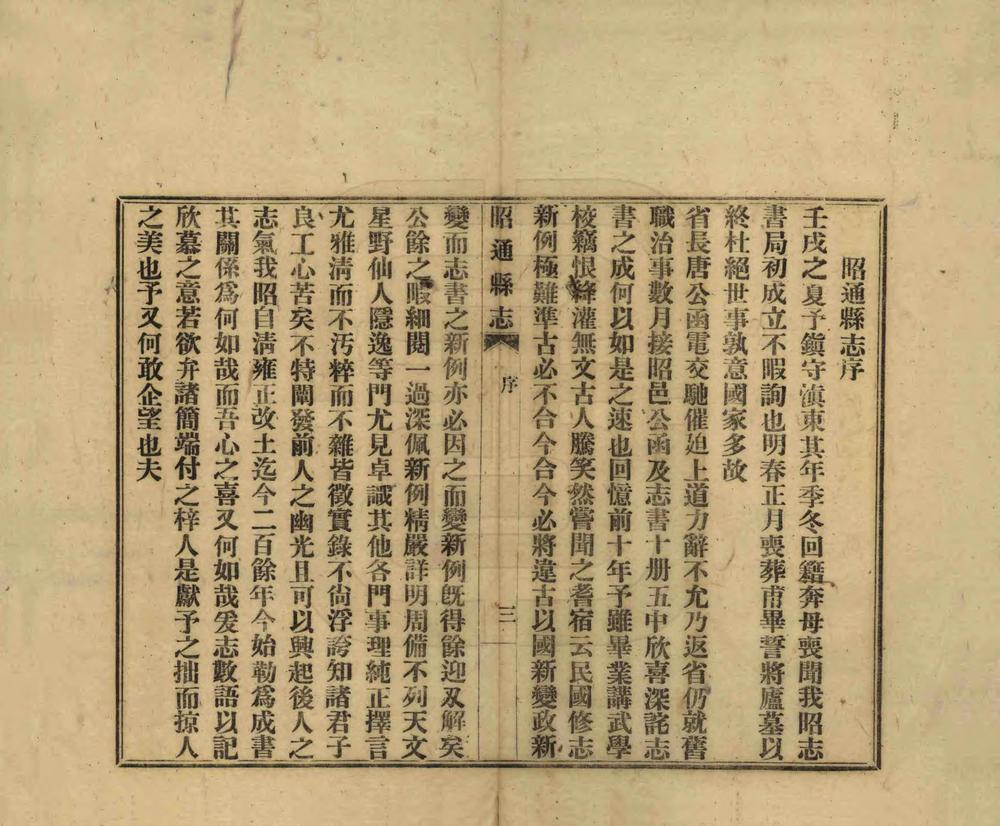 昭通縣志序
壬戌之夏予鎭守滇東其年季冬回籍奔母喪聞我昭志
書局初成立不暇詢也明春正月喪葬甫畢誓將廬墓以
終杜絕世事孰意國家多故
省長唐公函電交馳催廹上道力辭不允乃返省仍就舊
職治事數月接昭邑公函及志書十册五中欣喜深詫志
書之成何以如是之速也回憶前十年予雖畢業講武學
校竊恨絳灌無文古人騰笑然嘗聞之耆宿云民國修志
新例極難準古必不合今合今必將違古以國新變政新
昭通縣志
序
三
變而志書之新例亦必因之而變新例旣得餘迎刄解矣
公餘之暇細閱一過深佩新例精嚴詳明周備不列天文
星野仙人隱逸等門尤見卓識其他各門事理純正擇言
尤雅清而不汚粹而不雜皆徵實錄不尙浮誇知諸君子
良工心苦矣不特闡發前人之幽光且可以興起後人之
志氣我昭自淸雍正改土迄今二百餘年今始勒爲成書
其關係爲何如哉而吾心之喜又何如哉爰志數語以記
欣慕之意若欲弁諸簡端付之梓人是獻予之拙而掠人
之美也予又何敢企望也夫